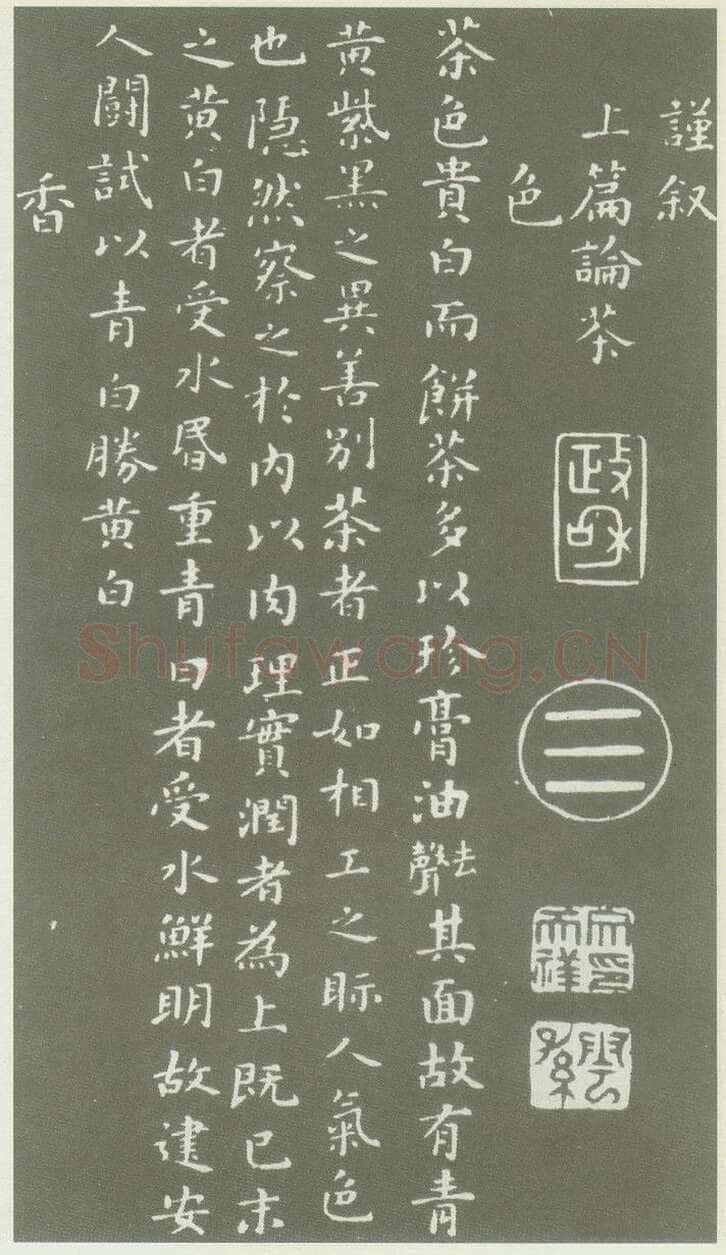 謹叙
上篇論茶
政和
色
茶色貴白而餅茶多以珍膏油去聲其面故有青
黄紫黑之異善別茶者正如相工之眎人氣色
也隱然察之於内以肉理實潤者為上既已末
之黄白者受水昬重青白者受水鮮明故建安
人鬪試以青白勝黄白
香
Shufawang.CN